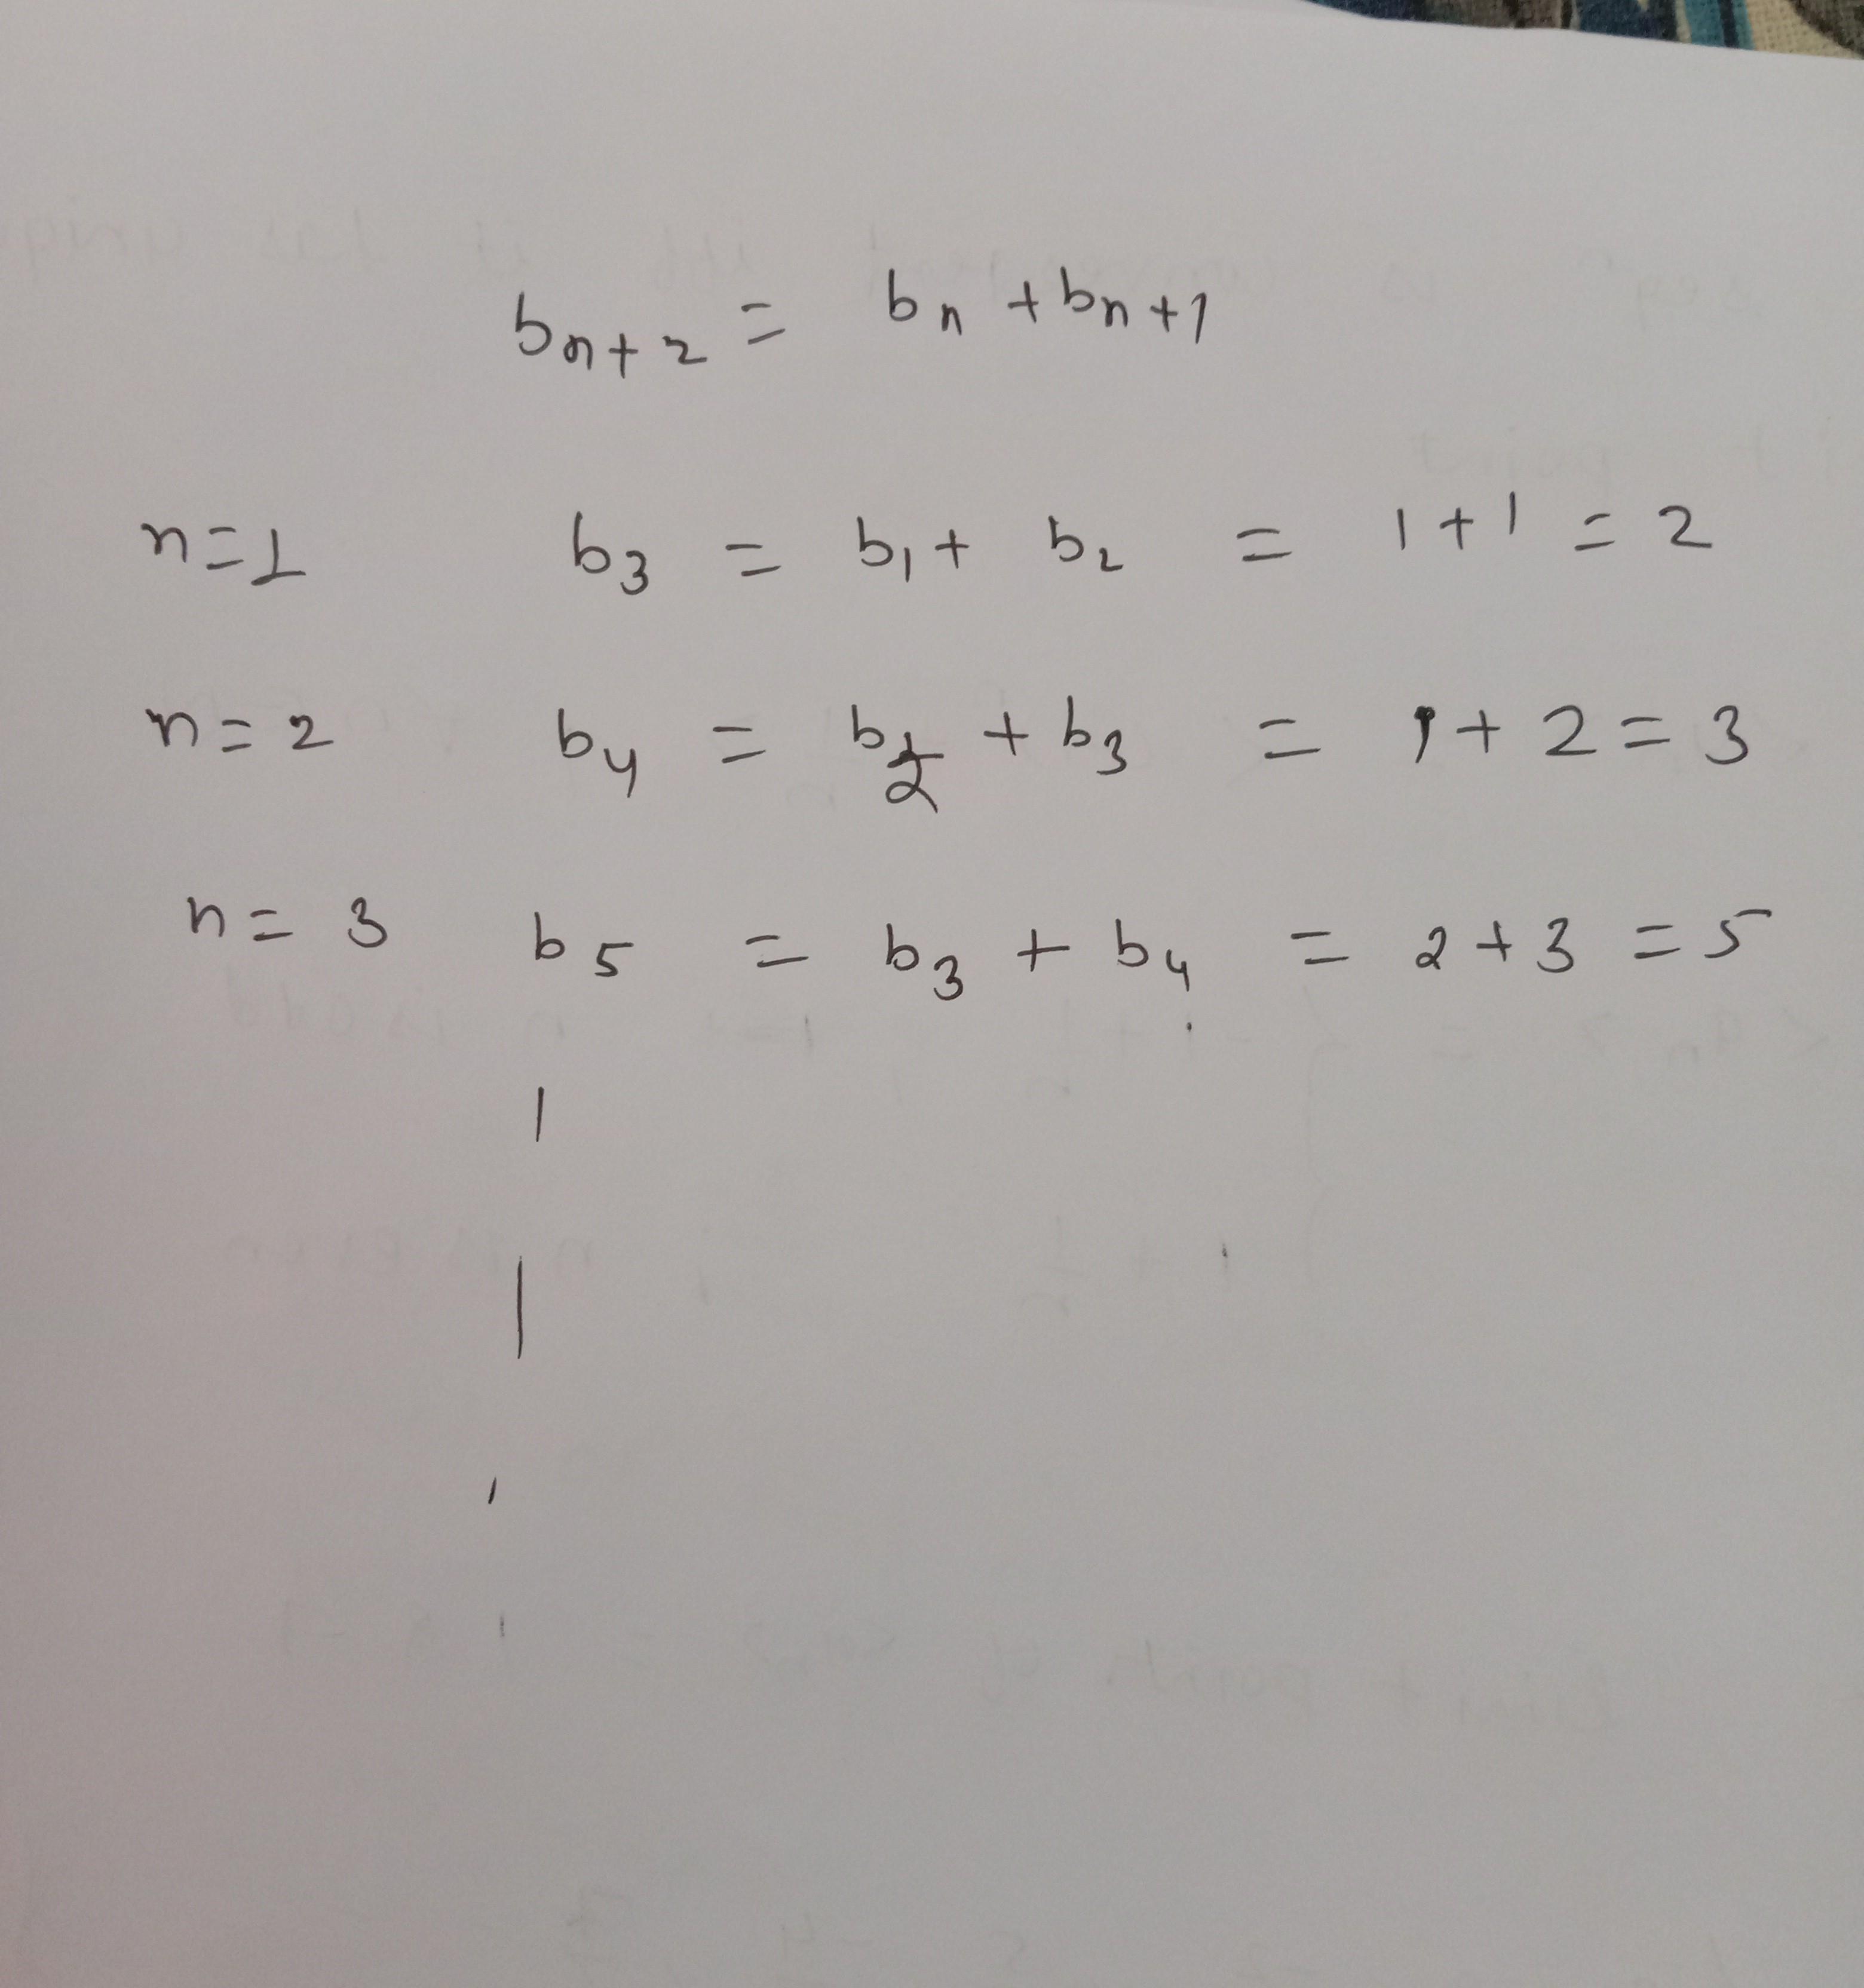 bn+2 = bn + bn+1
n=1 b3 = b1 + b2 = 1+1 = 2
n=2 b4 = b2 + b3 = 1+2=3
n=3 b5 = b3 + b4 = 2+3 =5